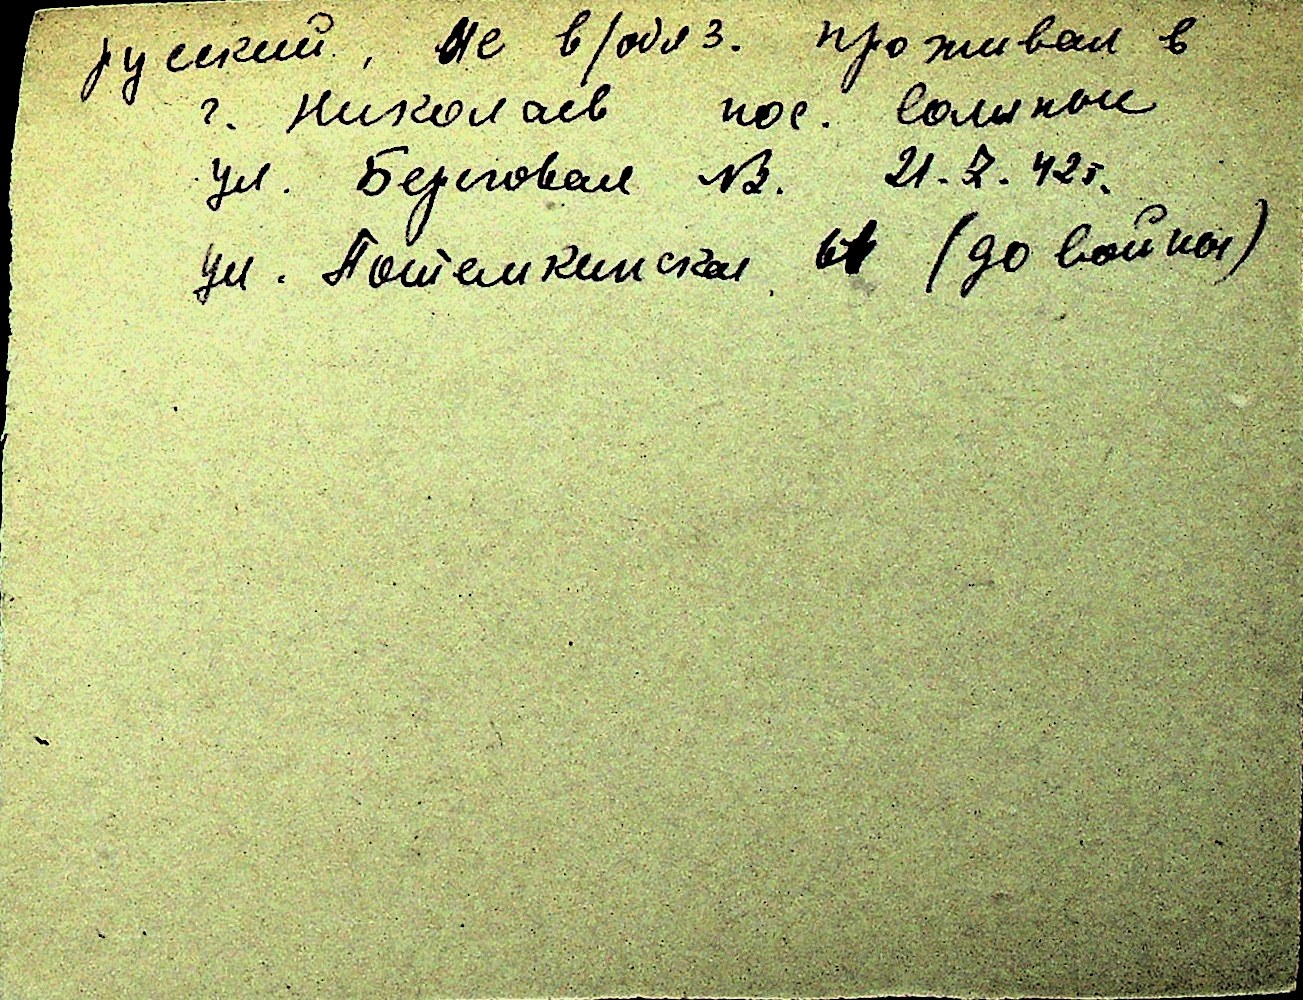 русский, не в/обяз. проживал в
г. Николаев пос. Соляные
ул. Береговая №3. 21.7.42г.
ул. Потемкинская, 61 (до войны)